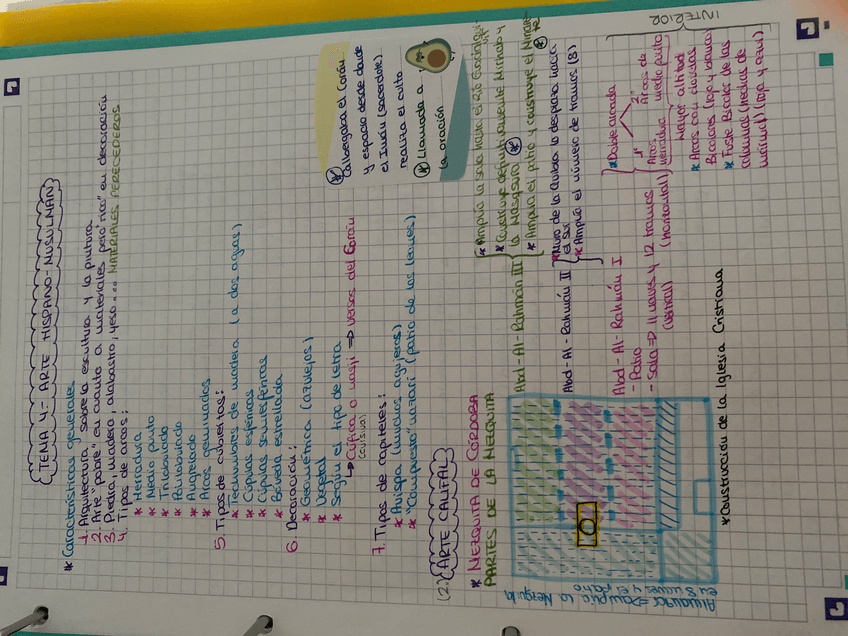 TEMA 4 - ARTE HISPANO-MUSULMÁN
* Características generales
1. Arquitectura sobre escultura y la pintura
2. Arte "pobre" en cuanto a materiales pero "rico" en decoración
3. Piedra, madera, alabastro, yeso... MATERIALES PERECEDEROS
4. Tipos de arcos:
* Herradura
* Medio punto
* Trilobulado
* Polilobulado
* Angrelado
* Arcos geminados
5. Tipos de cubiertas:
* Techumbres de madera (a dos aguas)
* Cúpulas esféricas
* Cúpulas semiesféricas
* Bóveda estrellada
6. Decoración:
* Geométrica (azulejos)
* Vegetal
* Según el tipo de letra
↳ Cúfica o nasji → versos del Corán
cursiva
7. Tipos de capiteles:
* Avispa (muchos agujeros)
* "Compuesto" nazarí (patio de los leones)
* Albergaba el Corán
y espacio desde donde
el Imán (sacerdote)
realiza el culto
* Llamada a
la oración
(2.) ARTE CALIFAL
* MEZQUITA DE CÓRDOBA
PARTES DE LA MEZQUITA
Abd-Al-Rahman III
* Amplía la sala hasta el Río Guadalquivir
* Construye definitivamente Mirhab y
la Masqsura *
* Amplía el patio y construye el Minarete *
Abd-Al-Rahmán II
* Muro de la Quibla lo desplaza hacia
el sur
* Amplió el número de tramos (8)
Abd-Al-Rahmán I
- Patio
- Sala → 11 naves y 12 tramos
(vertical) (horizontal)
* Doble arcada
1º Arcos herradura
2º Arcos de medio punto
Mayor altitud
* Arcos con dovelas
Bicolores (rojo y blanco)
* Fuste Bicolor de las
columnas (hechas de
mármol) (rojo y azul)
INTERIOR
Almanzor → amplía la Mezquita
en 8 naves y el patio
* Construcción de la Iglesia Cristiana